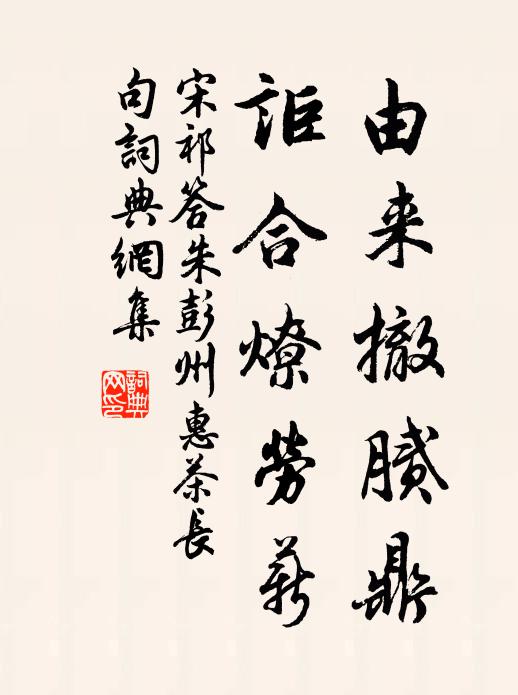 由来撤膩鼎
詎合燎勞薪
宋祁答朱彭州惠茶長
句詞典網集
詞典
网印